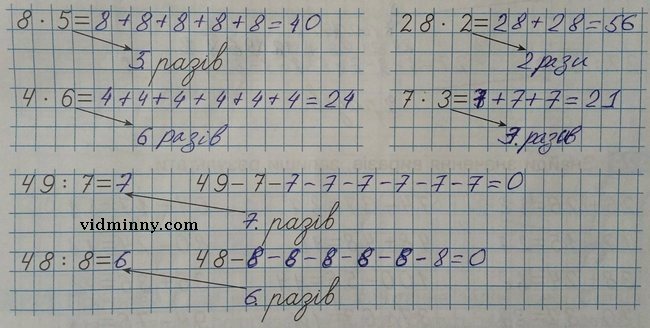 8 · 5 = 8 + 8 + 8 + 8 + 8 = 40
28 · 2 = 28 + 28 = 56
разів
2 рази
4 · 6 = 4 + 4 + 4 + 4 + 4 + 4 = 24
7 · 3 = 7 + 7 + 7 = 21
6 разів
разів
49 : 7 = 7
49 - 7 - 7 - 7 - 7 - 7 - 7 - 7 = 0
vidminny.com
7. разів
48 : 8 = 6
48 - 8 - 8 - 8 - 8 - 8 - 8 = 0
6. разів